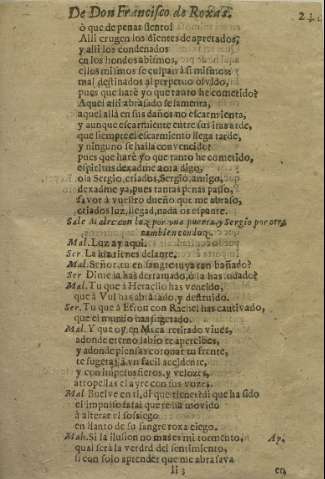 De Don Francisco de Roxas.
ò que de penas siento!
Alli crugen los dientes de apretados,
y alli los condenados
en los hondos abismos,
ellos mismos se culpan à si mismos:
mal destinados al perpetuo olvido,
pues que harè yo que tanto he cometido?
Aquel alli abrasado se lamenta,
aquel allà en sus daños no escarmienta,
y aunque escarmiente entre sus iras arde,
que siempre el escarmiento llega tarde,
y ninguno se halla convencido:
pues que harè yo que tanto he cometido,
espiritus dexadme aora digo,
ola Sergio, criados, Sergio, amigo,
dexadme ya, pues tantas penas passo,
favor à vuestro dueño que me abraso,
criados luz, llegad, nada os espante.
Sale Mahomet con luz por una puerta, y Sergio por otra
tambien con luz.
Mal. Luz ay aqui.
Ser La luz tienes delante.
Mal. Señor, tu en sangre tuya con bañado?
Ser Dime la has derramado, ò la has sudado?
Mal. Tu que à Heraclio has vencido,
que à Vul has abrasado, y destruido.
Ser. Tu que à Efron con Rachel has cautivado,
que el mundo has sugetado.
Mal. Y que oy, en Meca retirado vives,
adonde eterno labio te apercibes,
y adonde piensas coronar tu frente,
te sugetas à un facil accidente,
y con impetus fieros, y velozes,
atropellas el ayre con sus vozes.
Mal Buelve en ti, di que tienes? di que ha sido
el impulso fatal que te ha movido
à alterar el sosiego
en llanto de su sangre roxa ciego.
Mah. Si la ilusion no mas es mi tormento, Ap.
qual serà la verdad del sentimiento,
si con solo aprender que me abrasava
Ii 3 en